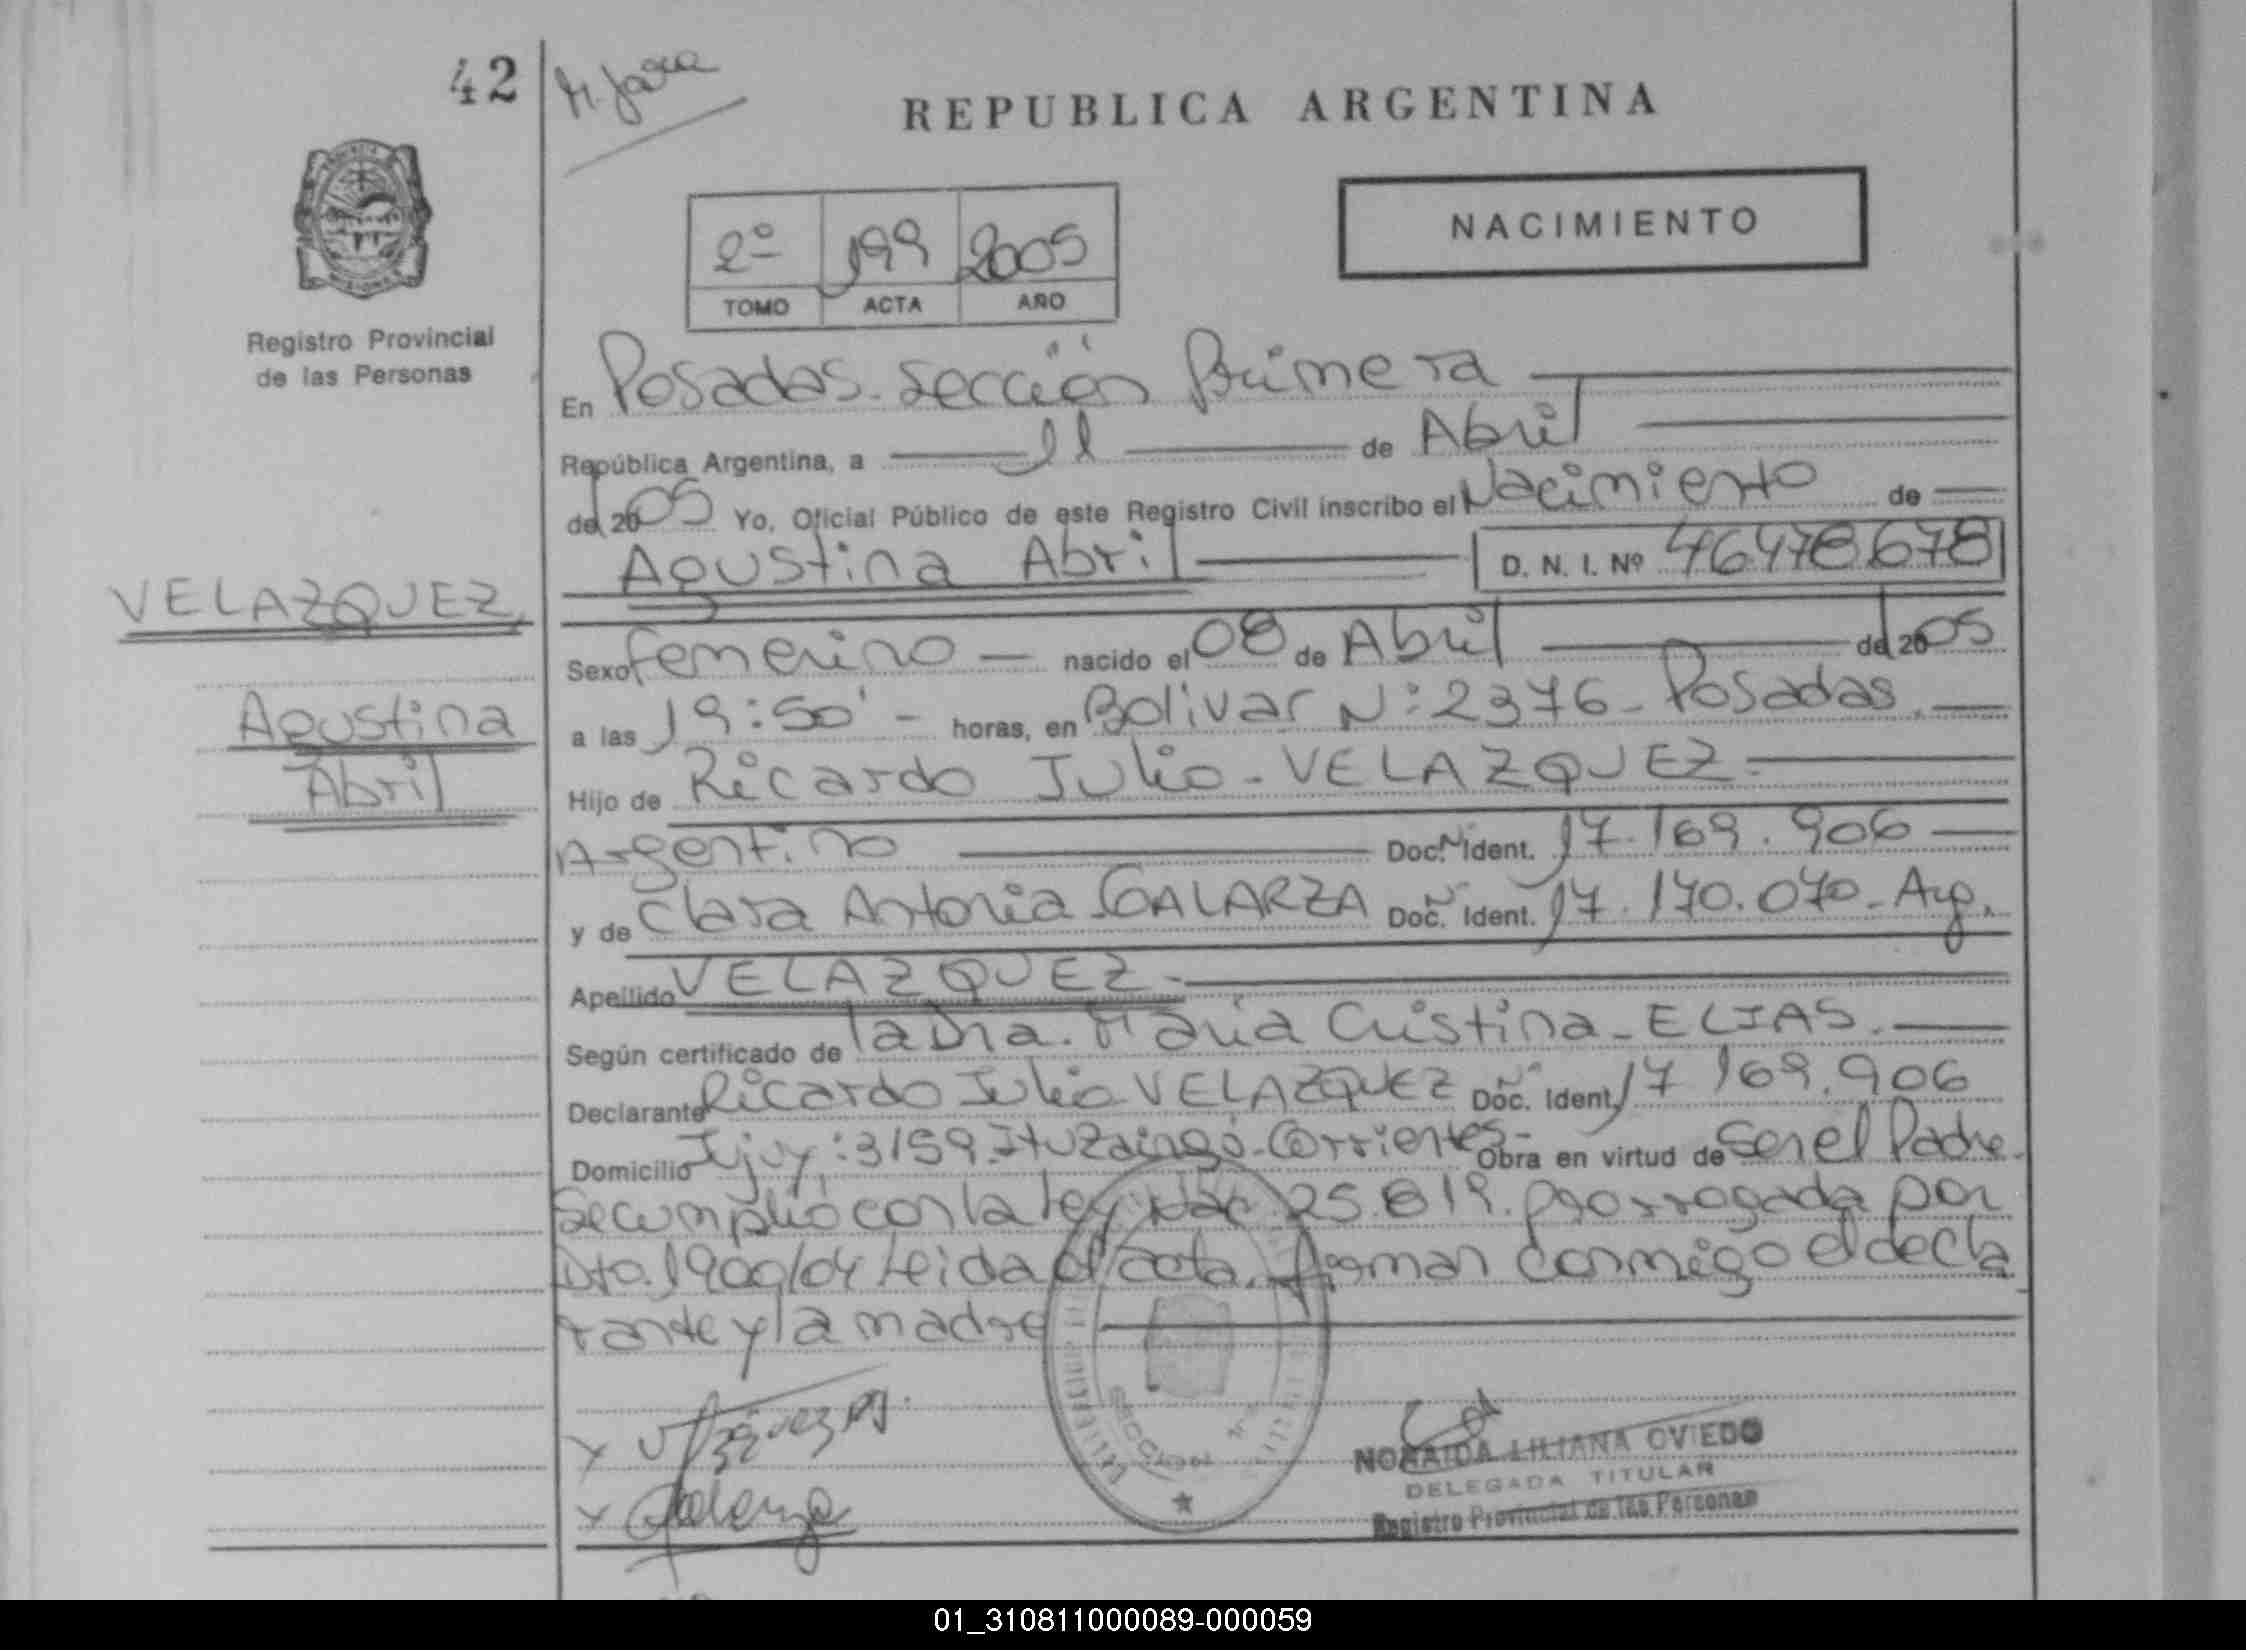 42
REPUBLICA ARGENTINA
NACIMIENTO
2º 199 2005
TOMO ACTA AÑO
Registro Provincial
de las Personas
En Posadas. Sección Primera
República Argentina, a 11 de Abril
del 2005 Yo, Oficial Público de este Registro Civil inscribo el Nacimiento de
Agustina Abril D. N. I. Nº 46.478.678
VELAZQUEZ,
Agustina
Abril
Sexo femenino nacido el 08 de Abril del 2005
a las 19:50' - horas, en Bolivar N: 2376 - Posadas.
Hijo de Ricardo Julio - VELAZQUEZ -
Argentino Doc. Nº Ident. 17.169.906
y de Clara Antonia - GALARZA Doc. Nº Ident. 17.170.070 - Arg.
Apellido VELAZQUEZ -
Según certificado de la Dra. María Cristina - ELIAS.
Declarante Ricardo Julio VELAZQUEZ Doc. Nº Ident. 17 169.906
Domicilio Jujuy: 3159. Ituzaingó - Corrientes - Obra en virtud de ser el Padre.
Se cumplió con la ley Nac. 25.819. prorrogada por
Dto. 1900/04 Leida el acta, firman conmigo el decla
rante y la madre
NORAIDA LILIANA OVIEDO
DELEGADA TITULAR
Registro Provincial de las Personas
01_310811000089-000059